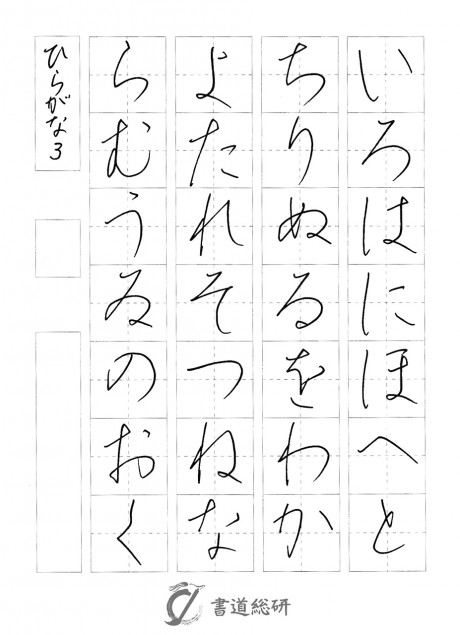 いろはにほへと
ちりぬるをわか
よたれそつねな
らむうゐのおく
ひらがな3
書道総研